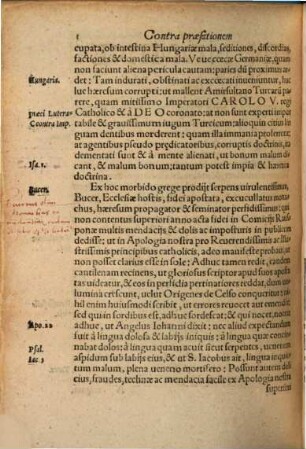 Contra præfationem
cupata, ob intestina Hungariæ mala, seditiones, discordias,
factiones & domestica mala. Væ uæ cæcæ Germaniæ, quam
non faciunt aliena pericula cautam: paries dū proximus ar
Hungaria.
det: Tam indurati, obstinati ac excœcati inueniuntur, huc
luc hæresum corrupti: ut mallent Amirsultano Turcarū pa
rere, quam mitissimo Imperatori CAROLO V. regi
Catholico & à DEO coronato: at non sunt experti intol
Contra Imp.
rabile & grauissimum iugum Turcicum: alioquin citius lin
guam dentibus morderent: quam illa immania proferrent:
at agnoscit pseudo prędicatoribus, corruptis doctrina,
Isa. 5.
dementati sunt & à mente alienati, ut bonum malum di
cant, & malum bonum: tantum potest impia & hæretica
doctrina.
Bucer.
Ex hoc morbido grege prodijt serpens uirulentissimus,
Bucer, Ecclesiæ hostis, fidei apostata, excucullatus mona
chus, hæresum propugator & seminator perditissimus: qui
non contentus superiori anno acta fidei in Comicijs Ratis
ponæ multis mendacijs & dolis ac imposturis in publicum
dedisse: ut in Apologia nostra pro Reuerendissimis ac Illu
strissimis principibus catholicis, adeo manifeste probaui, ut
non posset clarius esse in sole: Adhuc tamen redit, eandem
cantilenam recinens, ut gloriosus scriptor apud suos aposta
tas uideatur, & eos in perfidia pertinatiores reddat, dum
lumina crescunt, uelut Origenes de Celso conqueritur:
nil enim huiusmodi scribit, ut errores reuocet emendet:
qui in sordibus est, adhuc sordescat: & qui nocet, noceat
Apo. 22
adhuc, ut Angelus Iohanni dixit: nec aliud expectandum
fuit à lingua dolosa & labijs iniquis: à lingua quæ conci
Psal.
nabat dolos: à lingua quam acuit sicut serpentes, uenenum
aspidum sub labijs eius, & ut S. Iacobus ait, lingua inqui
Iac. 3
tum malum, plena ueneno mortifero: Possunt autem doli
eius, fraudes, technæ ac mendacia facile ex Apologia nostra